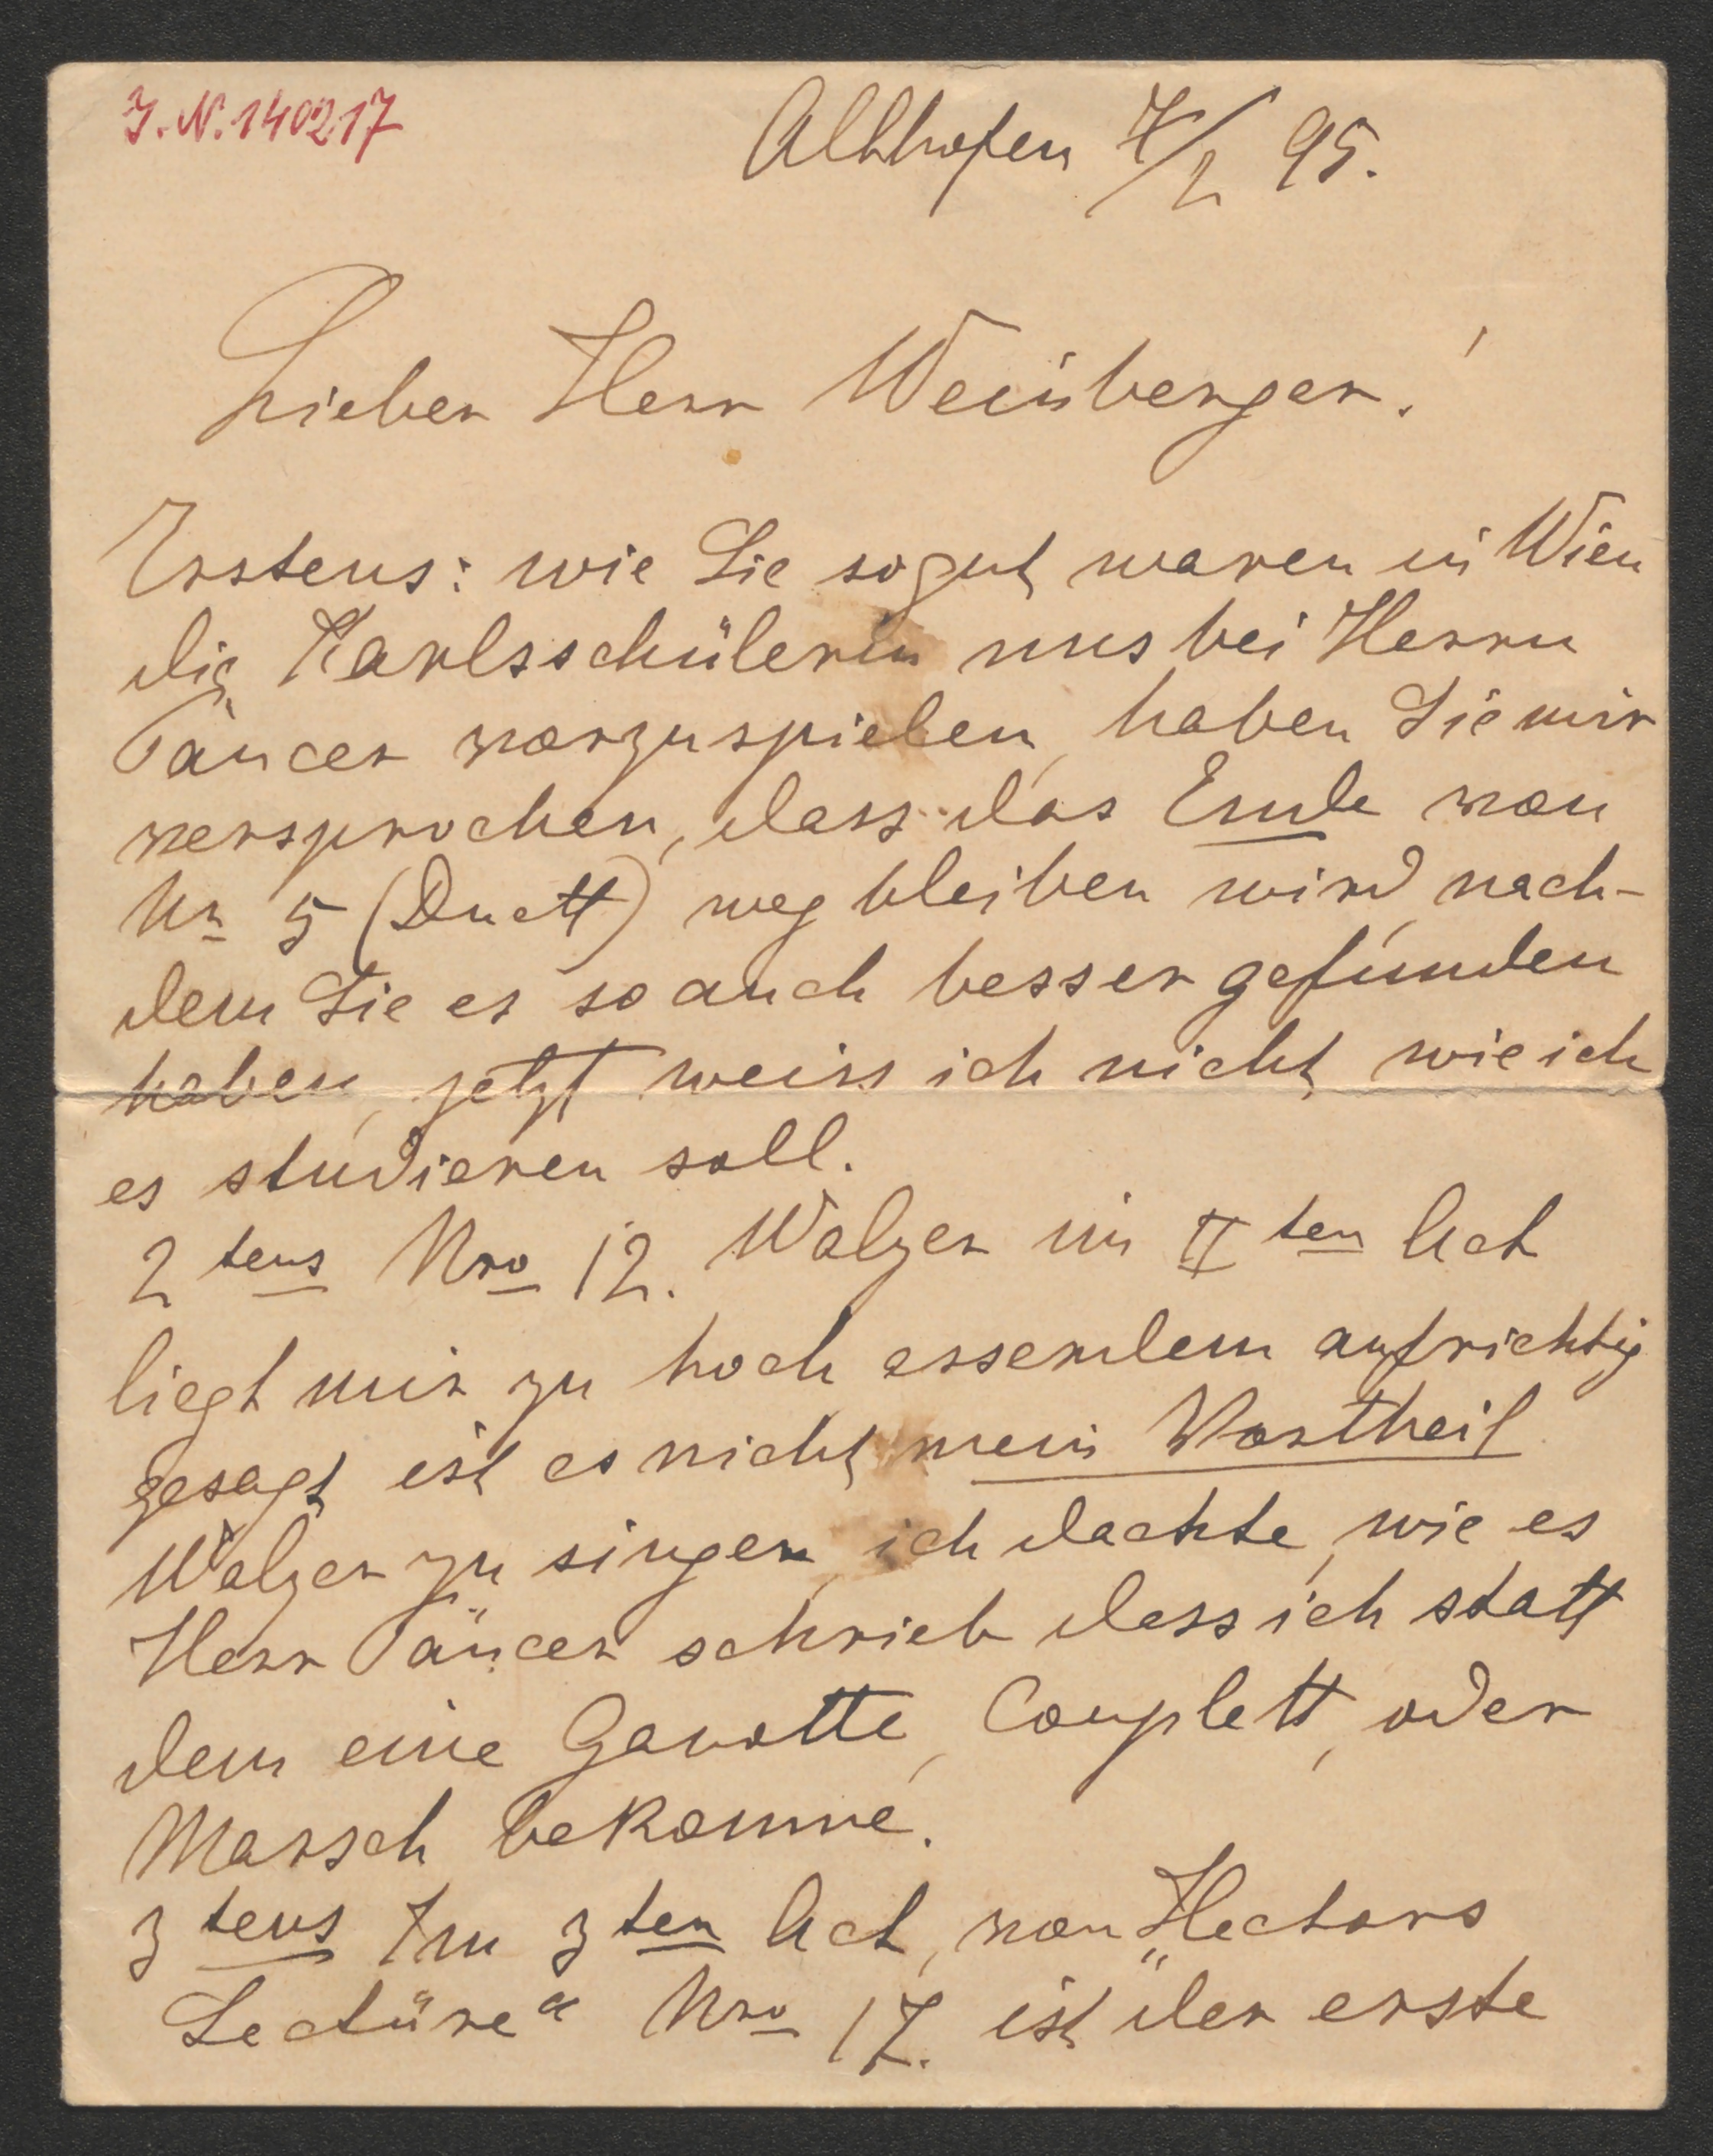 J. N. 140217
Althofen 7/2 95.
Lieber Herr Weinberger!
Erstens: wie Sie so gut waren in Wien
die Karlsschülerin uns bei Herrn
Täncer vorzuspielen, haben Sie mir
versprochen, dass das Ende von
Nr 5 (Duett) weg bleiben wird, nach-
dem Sie es so auch besser gefunden
haben, jetzt weiss ich nicht, wie ich
es studieren soll.
2tens Nro 12. Walzer im IIten Act
liegt mir zu hoch esserdem aufrichtig
gesagt ist es nicht mein Vortheil
Walzer zu singen, ich dachte, wie es
Herr Täncer schrieb dass ich statt
dem eine Gavotte, Couplett, oder
Marsch bekomme.
3tens Im 3ten Act, von „Hectors
Lectüre“ Nro 17. ist der erste